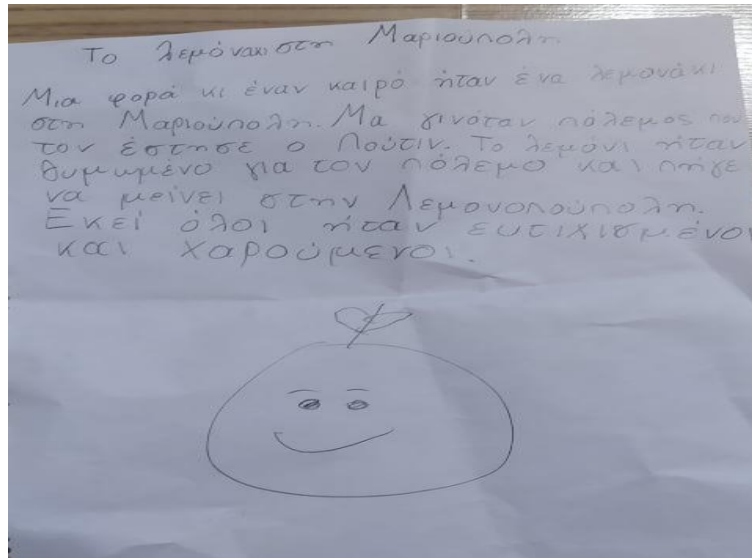 Το λεμόνακι στη Μαριούπολη
Μια φορά κι έναν καιρό ήταν ένα λεμονάκι
στη Μαριούπολη. Μα γινόταν πόλεμος που
τον έστησε ο Πούτιν. Το λεμόνι ήταν
θυμωμένο για τον πόλεμο και πήγε
να μείνει στην Λεμονοπούπολη.
Εκεί όλοι ήταν ευτιχισμένοι
και χαρούμενοι.